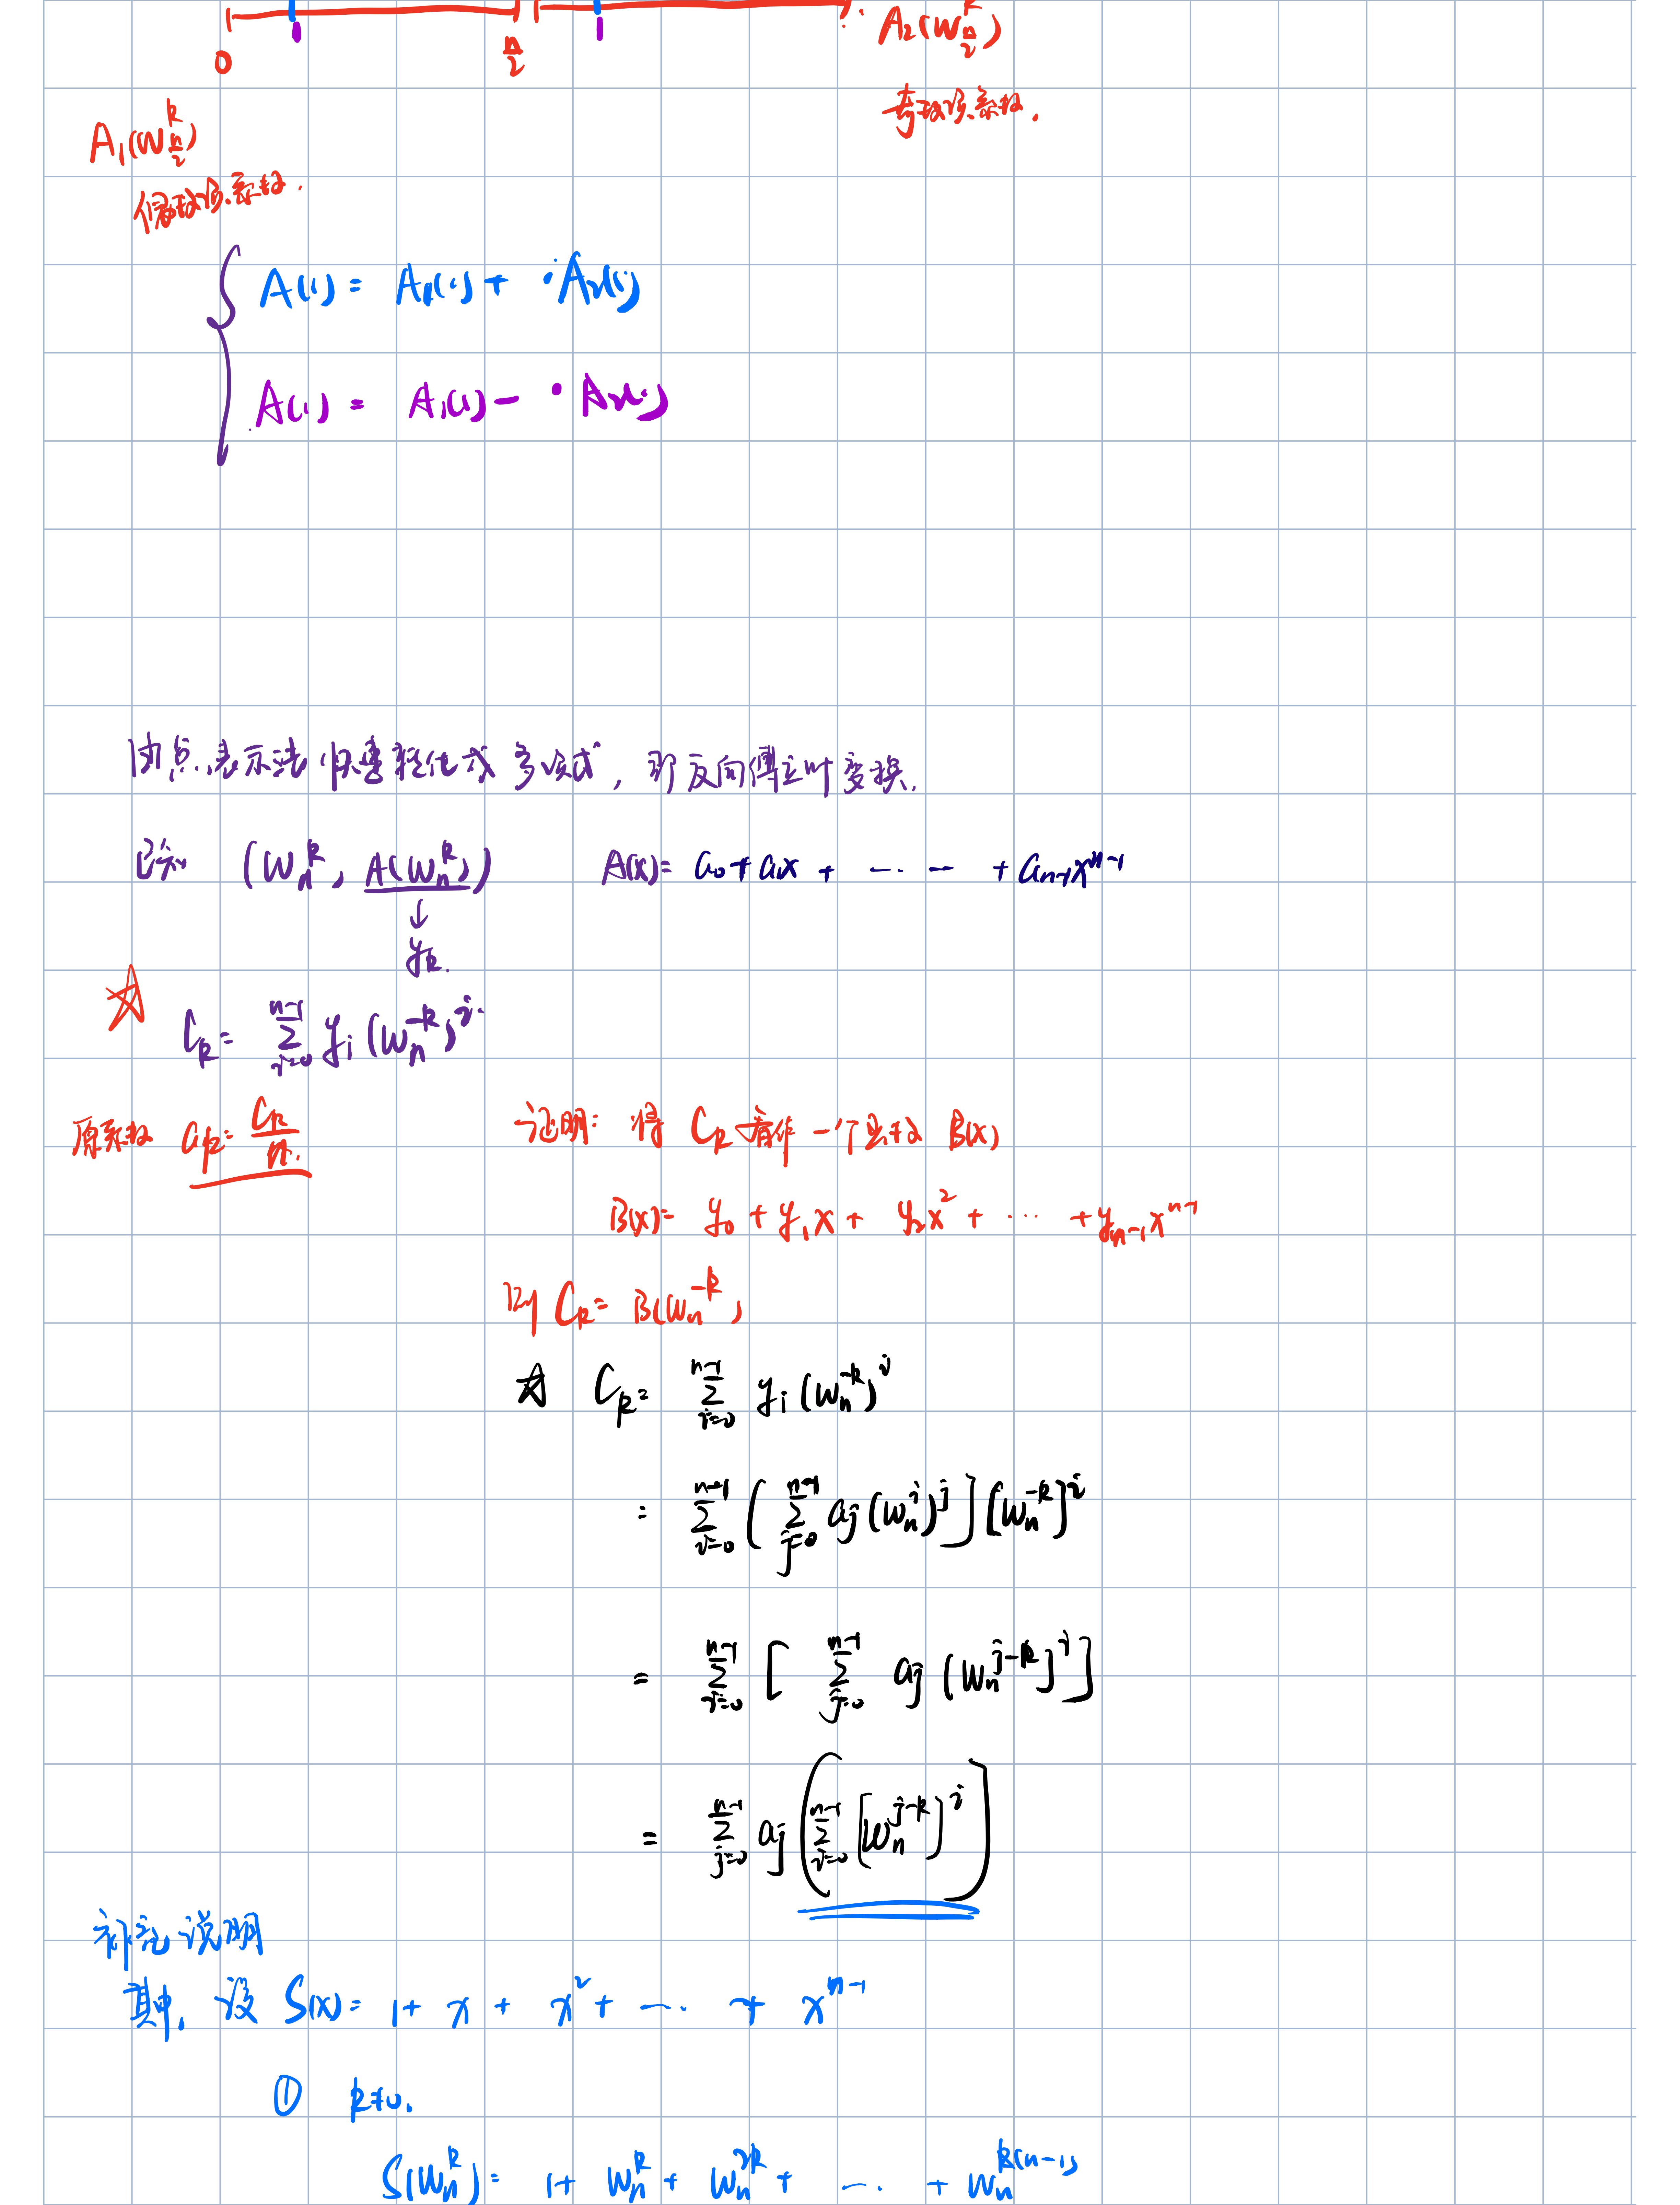 0 n/2 A₂(ω_{n/2}^k)
奇数项系数.
A₁(ω_{n/2}^k)
偶数项系数.
A(·) = A₁(·) + ·A₂(·)
A(·) = A₁(·) - ·A₂(·)
由点表示法快速转化成多项式, 即反向傅立叶变换.
已知 (ω_n^k, A(ω_n^k)) A(x) = a₀ + a₁x + ··· ··· + a_{n-1}x^{n-1}
↓
y_k.
☆ C_k = ∑_{i=0}^{n-1} y_i (ω_n^{-k})^i.
原系数 a_k = C_k/n. 证明: 将 C_k 看作一个函数 B(x)
B(x) = y₀ + y₁x + y₂x² + ··· + y_{n-1}x^{n-1}
则 C_k = B(ω_n^{-k})
☆ C_k = ∑_{i=0}^{n-1} y_i (ω_n^{-k})^i
= ∑_{i=0}^{n-1} ( ∑_{j=0}^{n-1} a_j (ω_n^i)^j ] [ω_n^{-k}]^i
= ∑_{i=0}^{n-1} [ ∑_{j=0}^{n-1} a_j (ω_n^{j-k}]^i ]
= ∑_{j=0}^{n-1} a_j ( ∑_{i=0}^{n-1} [ω_n^{j-k}]^i )
补充说明
其中, 设 S(x) = 1 + x + x² + ··· + x^{n-1}
① k≠0.
S(ω_n^k) = 1 + ω_n^k + ω_n^{2k} + ··· + ω_n^{k(n-1)}